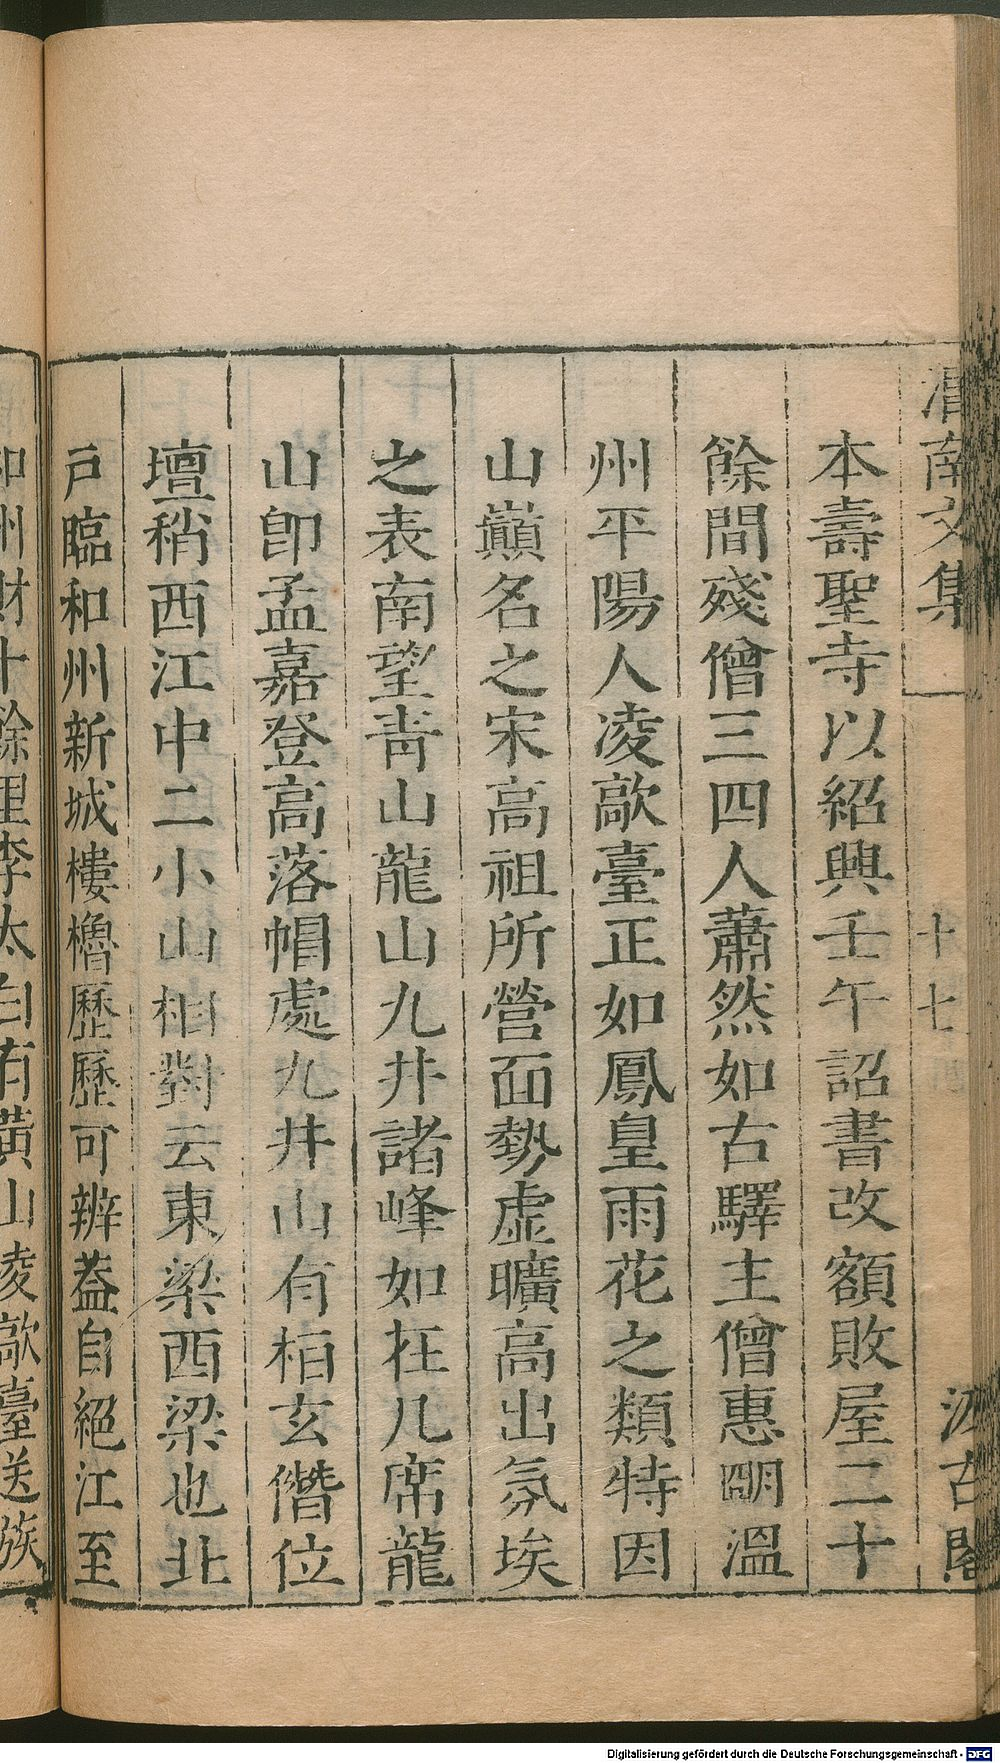 渭南文集
十七
汲古閣
本壽聖寺以紹興壬午詔書改額敗屋二十
餘間殘僧三四人蕭然如古驛主僧惠明溫
州平陽人凌歊臺正如鳳皇雨花之類特因
山巔名之宋高祖所營面勢虛曠高出氛埃
之表南望靑山龍山九井諸峰如在几席龍
山卽孟嘉登高落帽處九井山有桓玄僭位
壇稍西江中二小山相對云東梁西梁也北
戶臨和州新城樓櫓歷歷可辨葢自絕江至
和州財十餘里李太白有黃山凌歊臺送族
Digitalisierung gefördert durch die Deutsche Forschungsgemeinschaft - DFG